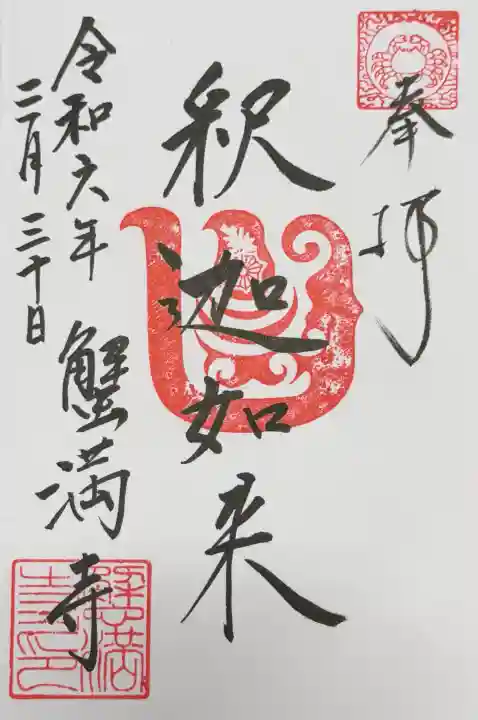 奉拝
釈迦如来
令和六年
三月三十日
蟹満寺
蟹満寺印